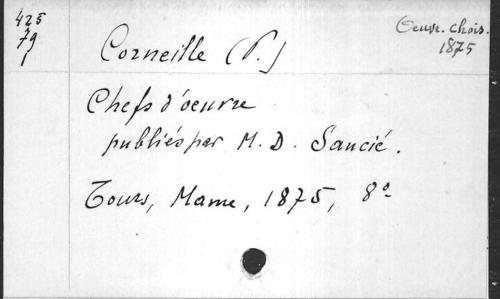 425
79
1
Oeuvr. chois.
1875
Corneille (P.)
Chefs d'oeuvre
publiés par M. D. Saucié.
Tours, Mame, 1875, 8º